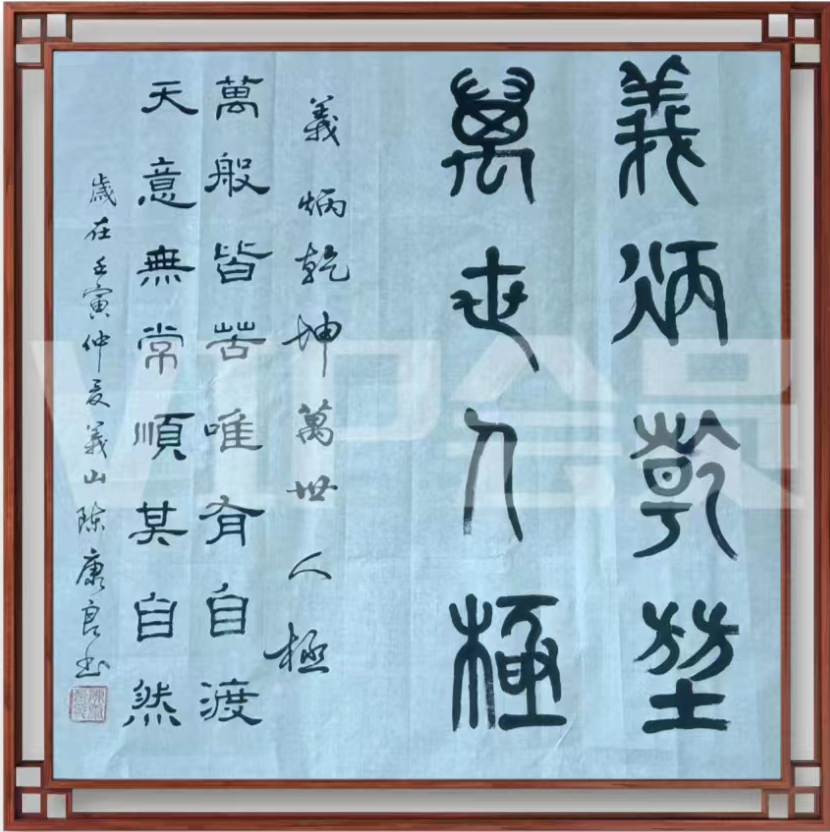 義炳乾坤
萬世人極
義炳乾坤萬世人極
萬般皆苦唯有自渡
天意無常順其自然
歲在壬寅仲夏義山陳康良书
VIP会员